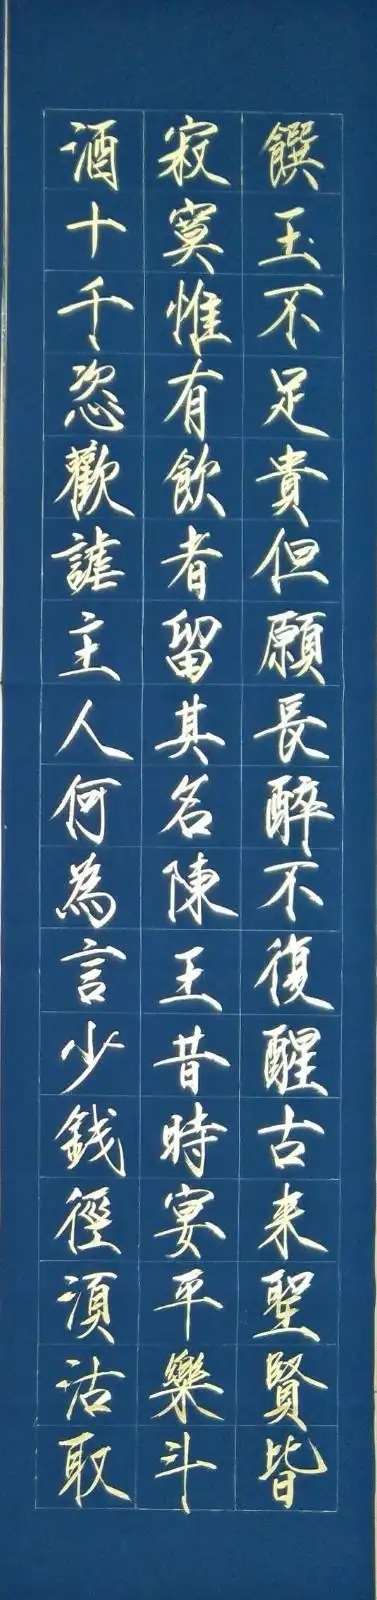 饌玉不足貴但願長醉不復醒古来聖賢皆
寂寞惟有飲者留其名陳王昔時宴平樂斗
酒十千恣歡謔主人何為言少錢徑須沽取